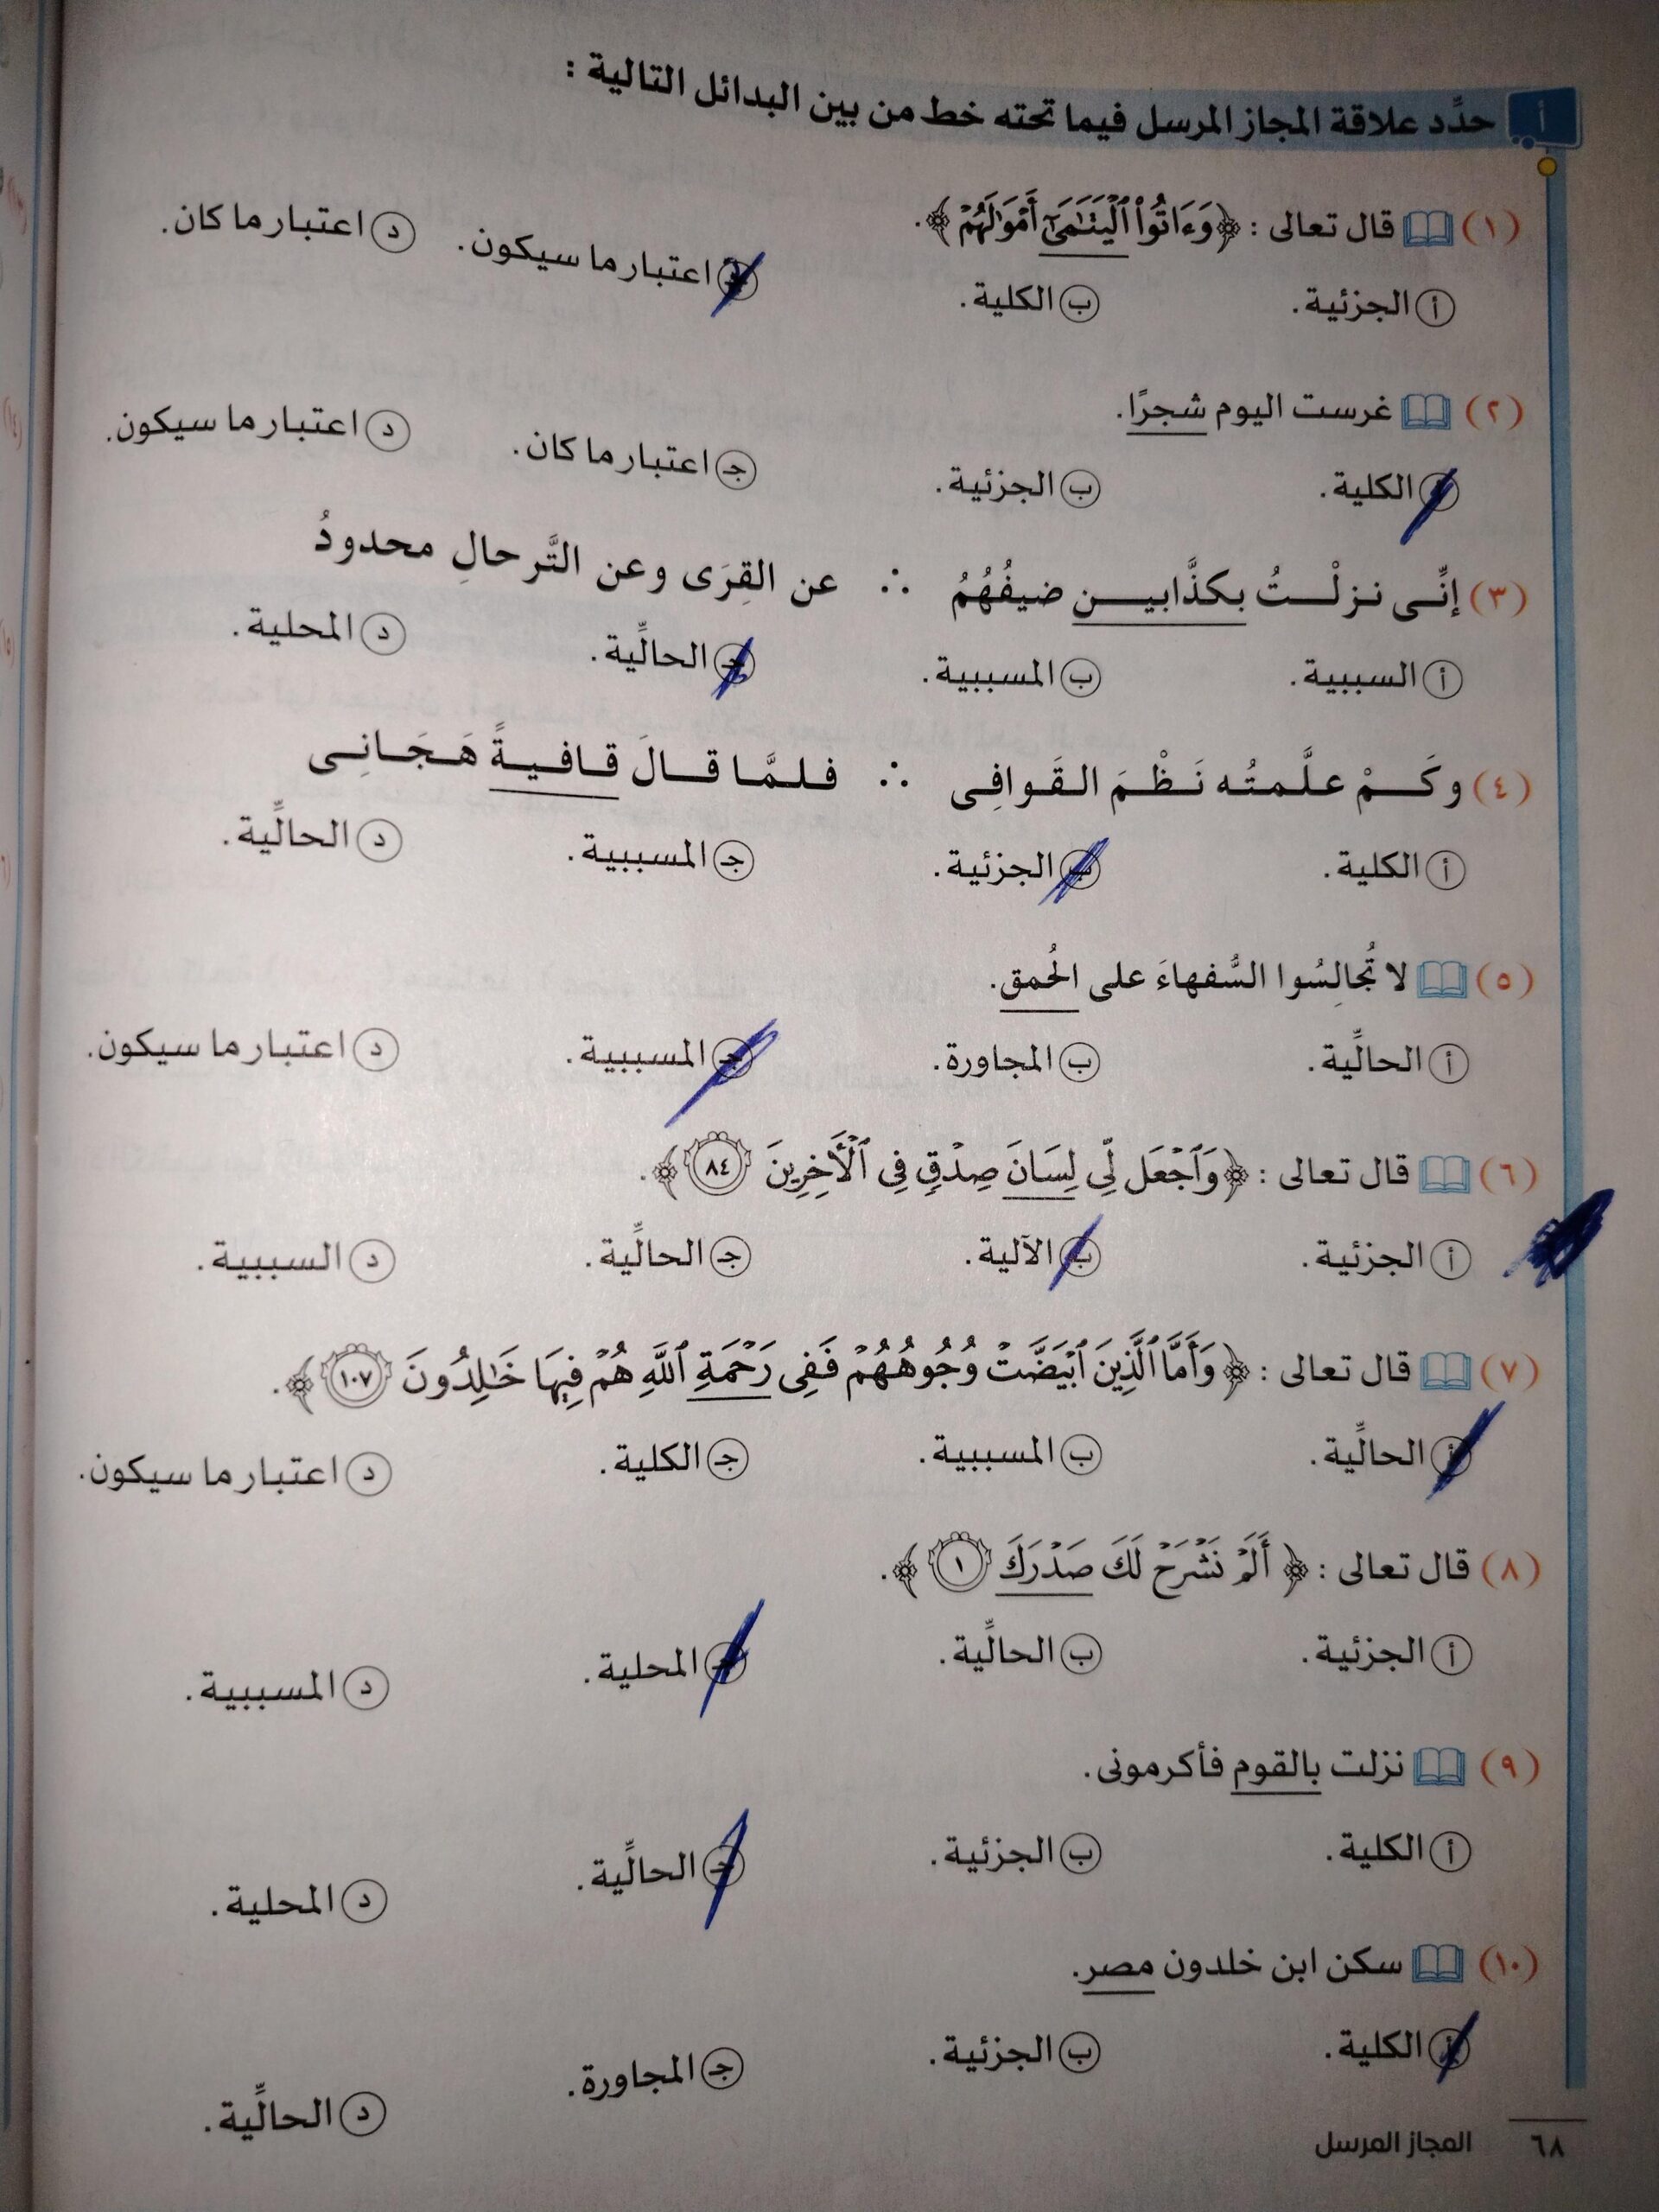 أ حدِّد علاقة المجاز المرسل فيما تحته خط من بين البدائل التالية :
(١) قال تعالى : ﴿وَءَاتُوا۟ ٱلْيَتَـٰمَىٰٓ أَمْوَٰلَهُمْ﴾.
أ الجزئية. ب الكلية. جـ اعتبار ما سيكون. د اعتبار ما كان.
(٢) غرست اليوم شجرًا.
أ الكلية. ب الجزئية. جـ اعتبار ما كان. د اعتبار ما سيكون.
(٣) إنِّى نزلْتُ بكذَّابين ضيفُهُمُ ∴ عن القِرَى وعن التَّرحالِ محدودُ
أ السببية. ب المسببية. جـ الحالِّية. د المحلية.
(٤) وكَمْ علَّمتُه نَظْمَ القَوافِى ∴ فلمَّا قالَ قافيةً هَجَانِى
أ الكلية. ب الجزئية. جـ المسببية. د الحالِّية.
(٥) لا تُجالِسُوا السُّفهاءَ على الحُمق.
أ الحالِّية. ب المجاورة. جـ المسببية. د اعتبار ما سيكون.
(٦) قال تعالى : ﴿وَٱجْعَل لِّى لِسَانَ صِدْقٍ فِى ٱلْـَٔاخِرِينَ ٨٤﴾.
أ الجزئية. ب الآلية. جـ الحالِّية. د السببية.
(٧) قال تعالى : ﴿وَأَمَّا ٱلَّذِينَ ٱبْيَضَّتْ وُجُوهُهُمْ فَفِى رَحْمَةِ ٱللَّهِ هُمْ فِيهَا خَـٰلِدُونَ ١٠٧﴾.
أ الحالِّية. ب المسببية. جـ الكلية. د اعتبار ما سيكون.
(٨) قال تعالى : ﴿أَلَمْ نَشْرَحْ لَكَ صَدْرَكَ ١﴾.
أ الجزئية. ب الحالِّية. جـ المحلية. د المسببية.
(٩) نزلت بالقوم فأكرمونى.
أ الكلية. ب الجزئية. جـ الحالِّية. د المحلية.
(١٠) سكن ابن خلدون مصر.
أ الكلية. ب الجزئية. جـ المجاورة. د الحالِّية.
٦٨ المجاز المرسل